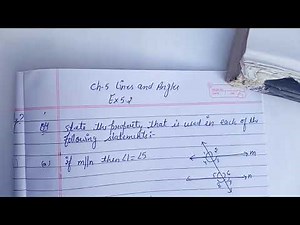 Ch.5 Lines and Angles
Ex 5.2
Q1 State the property that is used in each of the
following statements:-
(i) if m||n then ∠1 = ∠5
2
m
6
5
n